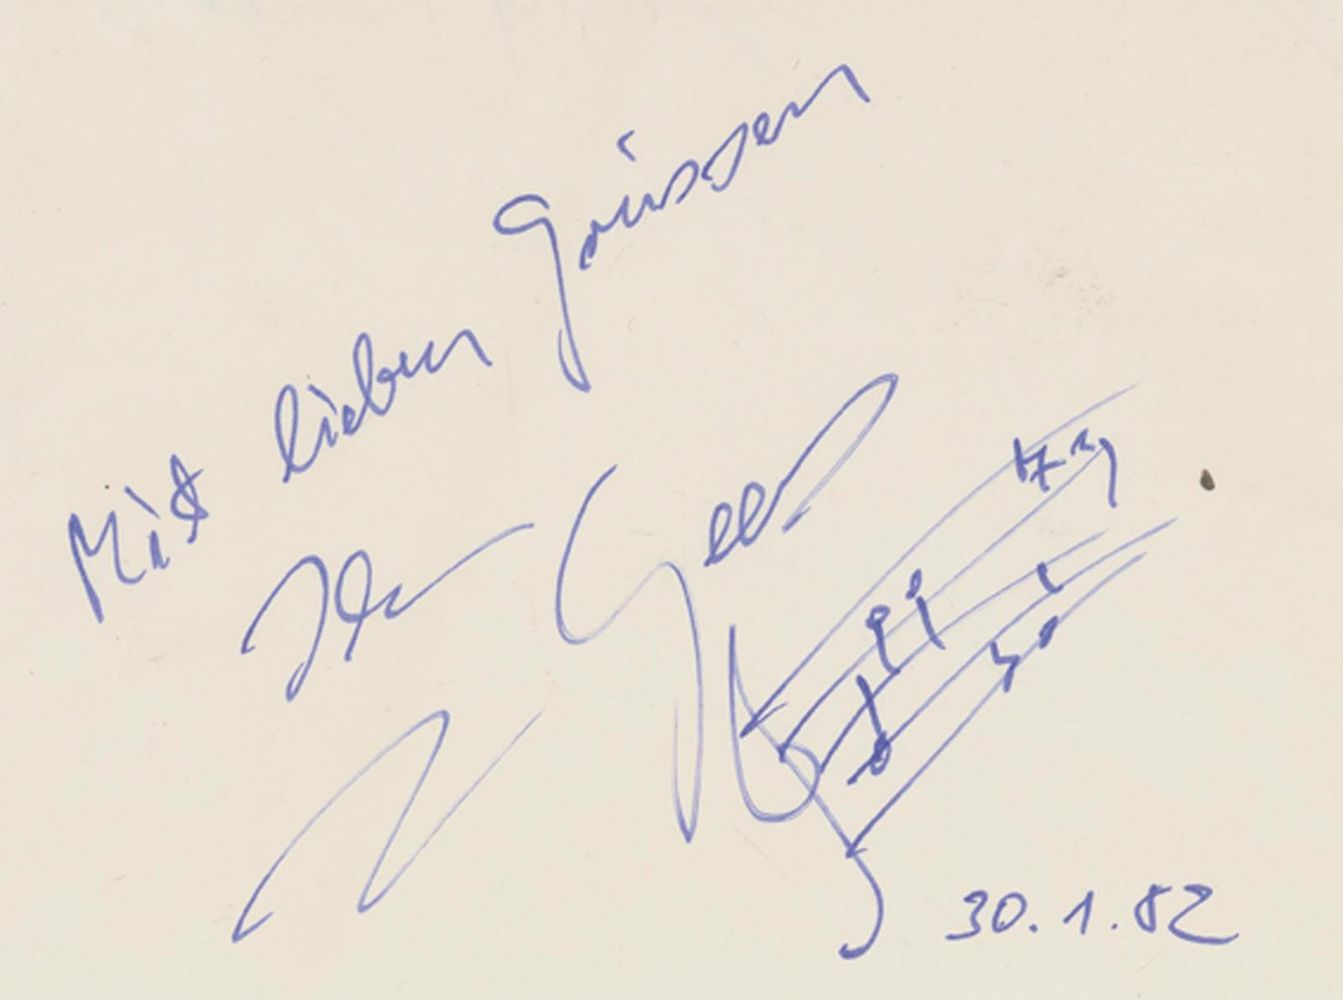 Mit lieben Grüssen
Ihr
30.1.82